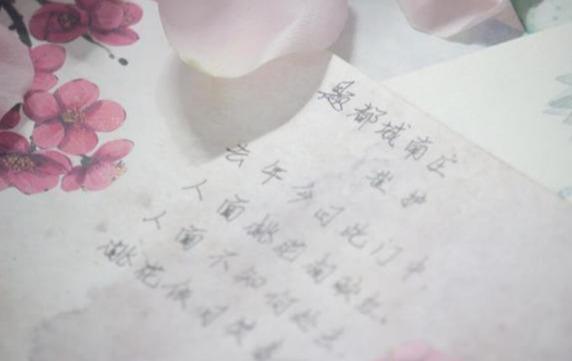 题都城南庄
崔护
去年今日此门中,
人面桃花相映红。
人面不知何处去
桃花依旧笑春